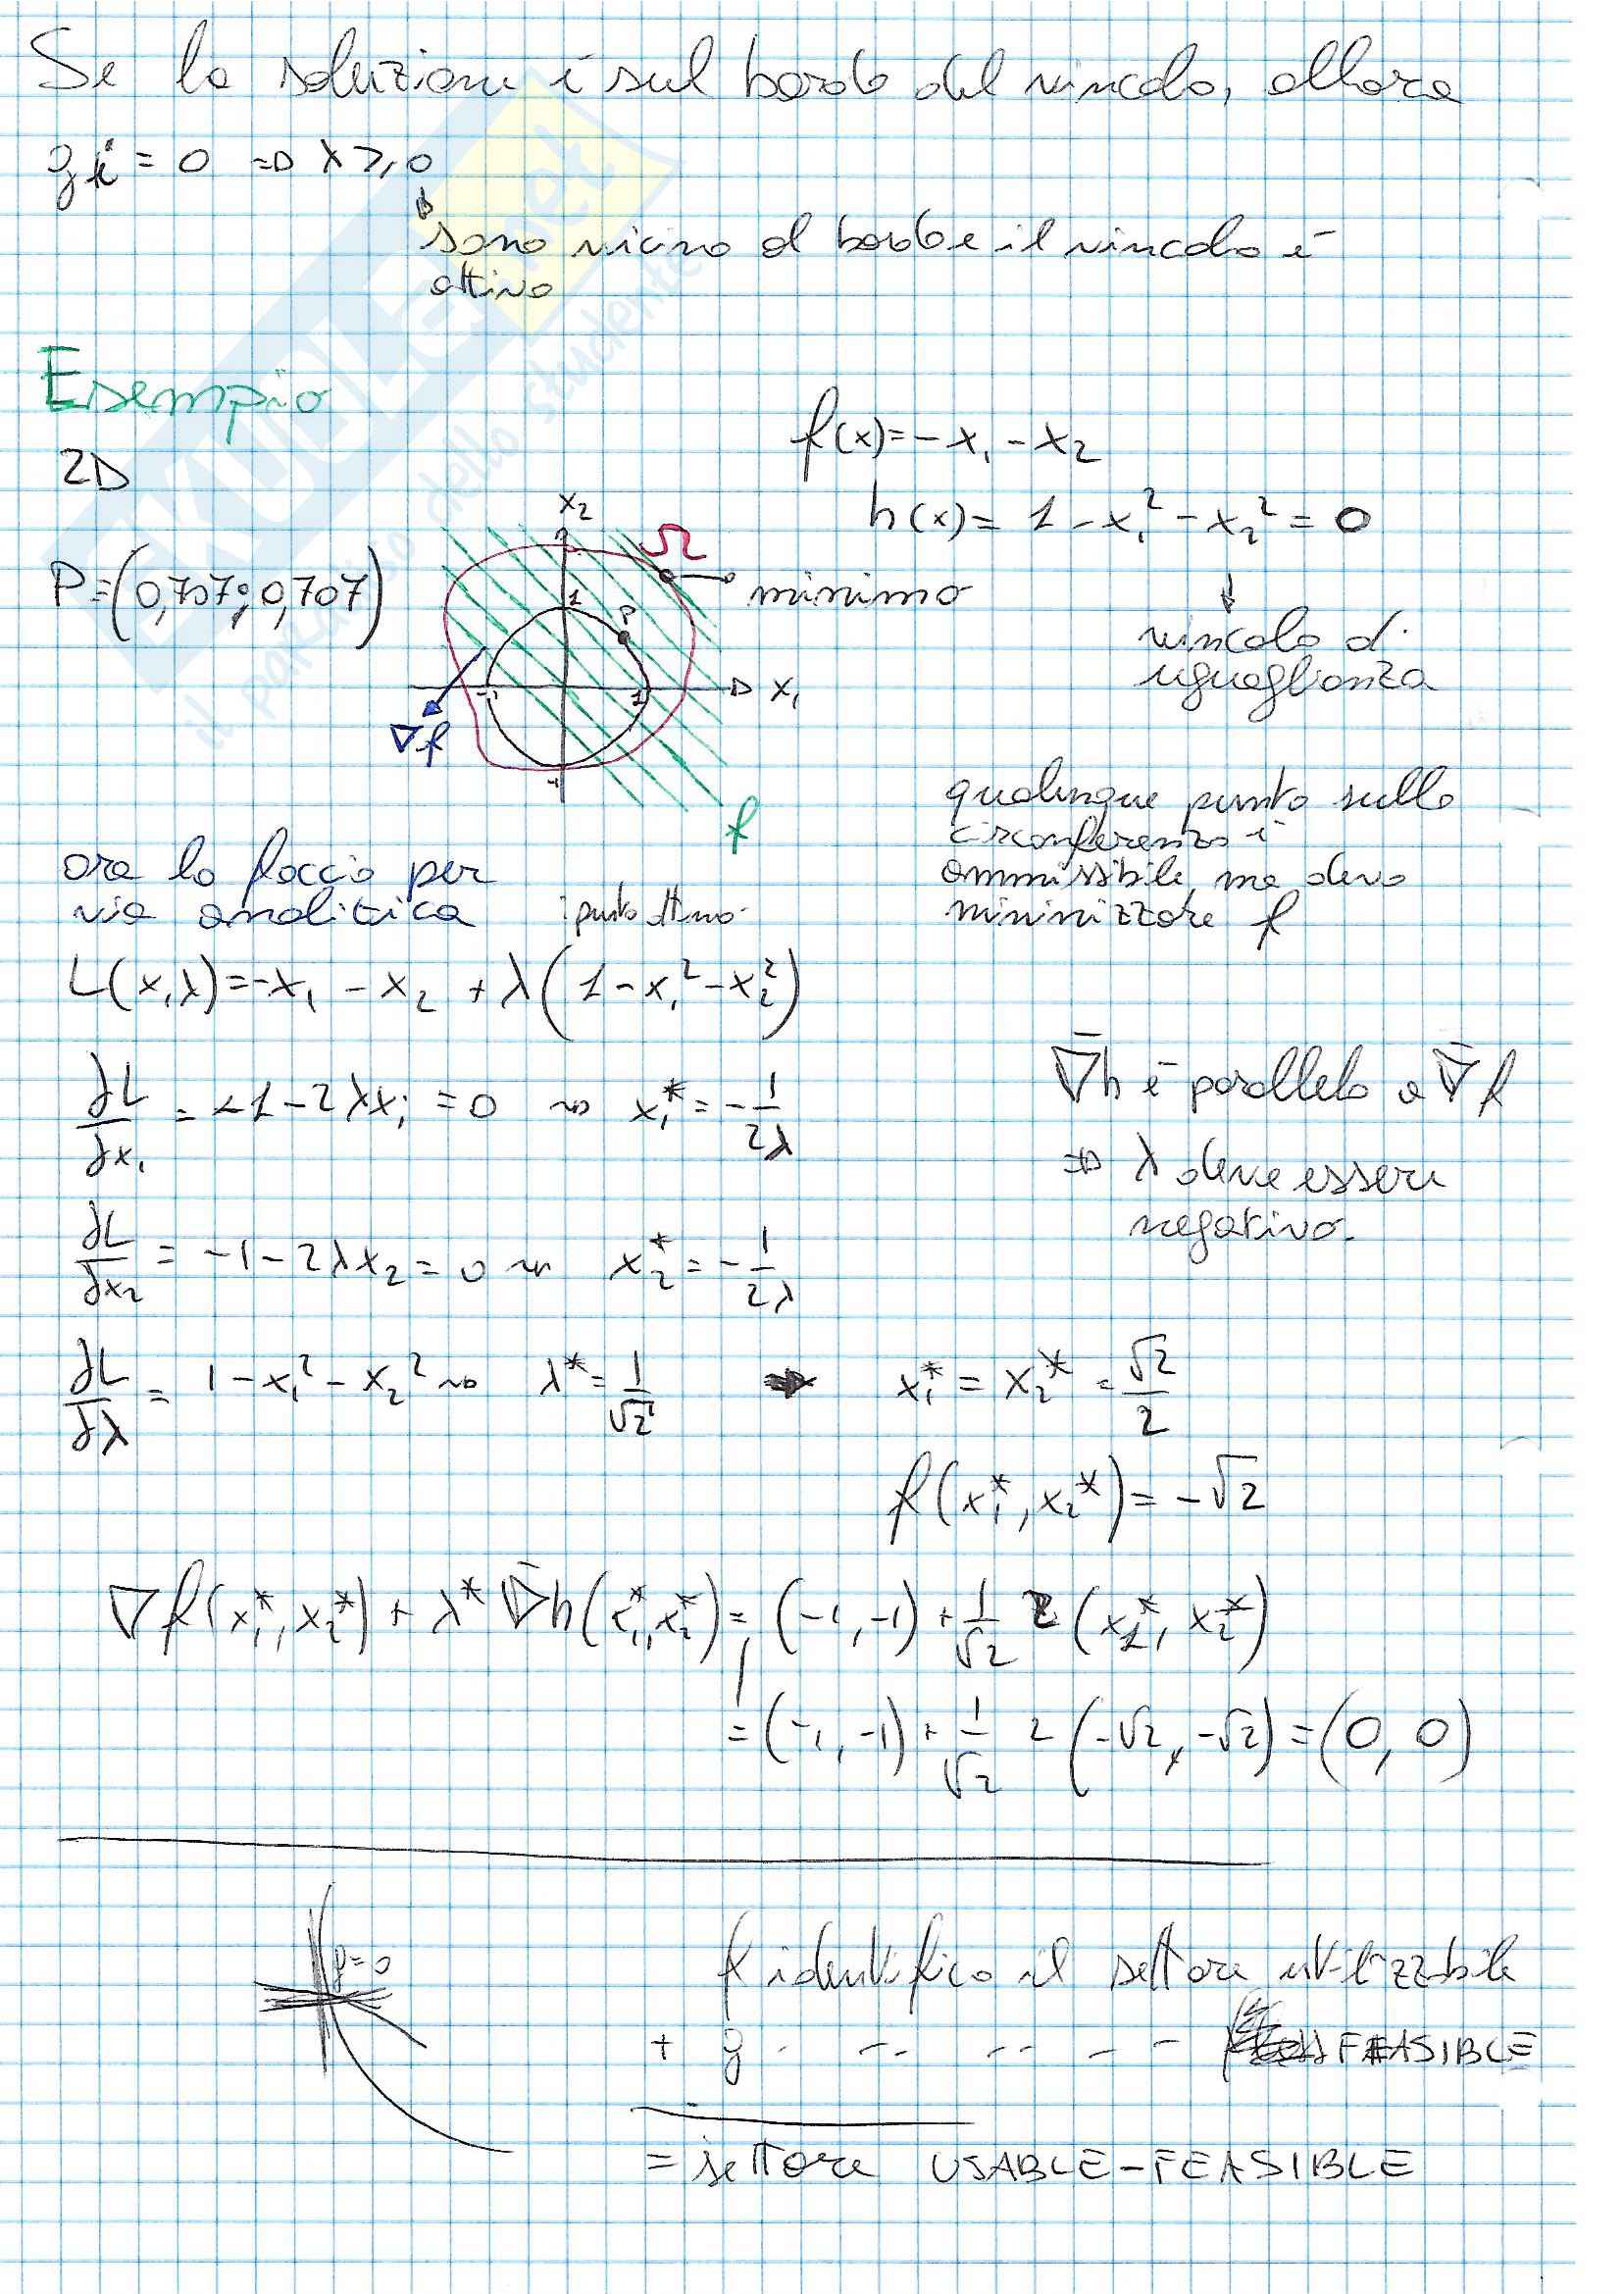 Se la soluzione è sul bordo del vincolo, allora
gi = 0 => λ ≥ 0
sono vicino al bordo e il vincolo è
attivo
Esempio
2D
f(x) = -x₁ - x₂
h(x) = 1 - x₁² - x₂² = 0
vincolo di
uguaglianza
P = (0,707; 0,707)
x₂
Ω
minimo
1
P
-1
1
x₁
∇f
-1
f
qualunque punto sulla
circonferenza è
ammissibile, ma devo
minimizzare f
ora lo faccio per
via analitica
è punto ottimo
L(x,λ) = -x₁ - x₂ + λ(1 - x₁² - x₂²)
∂L/∂x₁ = -1 - 2λx₁ = 0 ⇝ x₁* = -1/2λ
∇̄h è parallelo a ∇̄f
=> λ deve essere
negativo.
∂L/∂x₂ = -1 - 2λx₂ = 0 ⇝ x₂* = -1/2λ
∂L/∂λ = 1 - x₁² - x₂² ⇝ λ* = 1/√2 → x₁* = x₂* = √2/2
f(x₁*, x₂*) = -√2
∇f(x₁*, x₂*) + λ* ∇̄h(x₁*, x₂*) = (-1, -1) + 1/√2 2 (x₁*, x₂*)
= (-1, -1) + 1/√2 2 (-√2, -√2) = (0, 0)
f=0
f identifico il settore utilizzabile
+ g - -- -- - - FEASIBLE
= settore USABLE-FEASIBLE
il paradiso dello studente